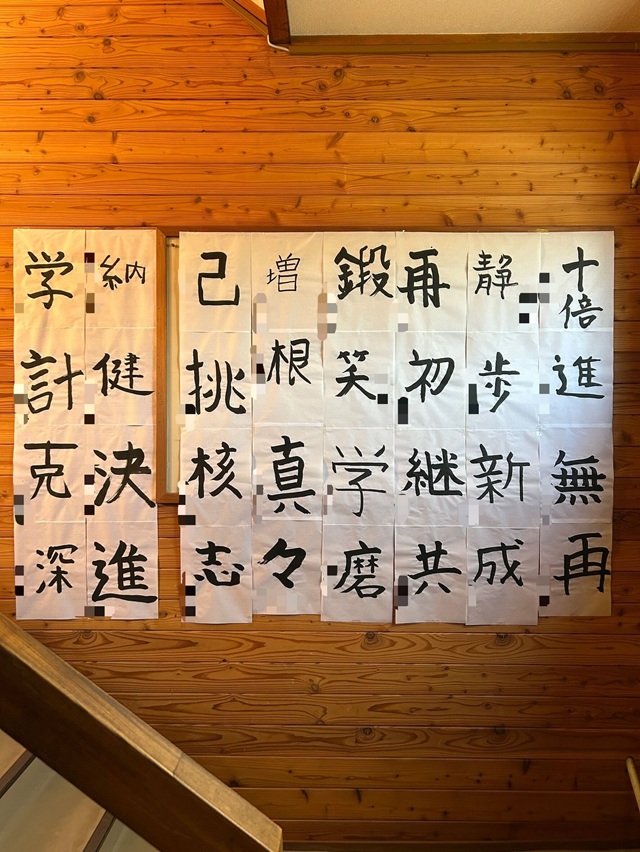 十倍進無再
静歩新成
再初継共
鍛笑学磨
増根真々
己挑核志
納健決進
学計克深